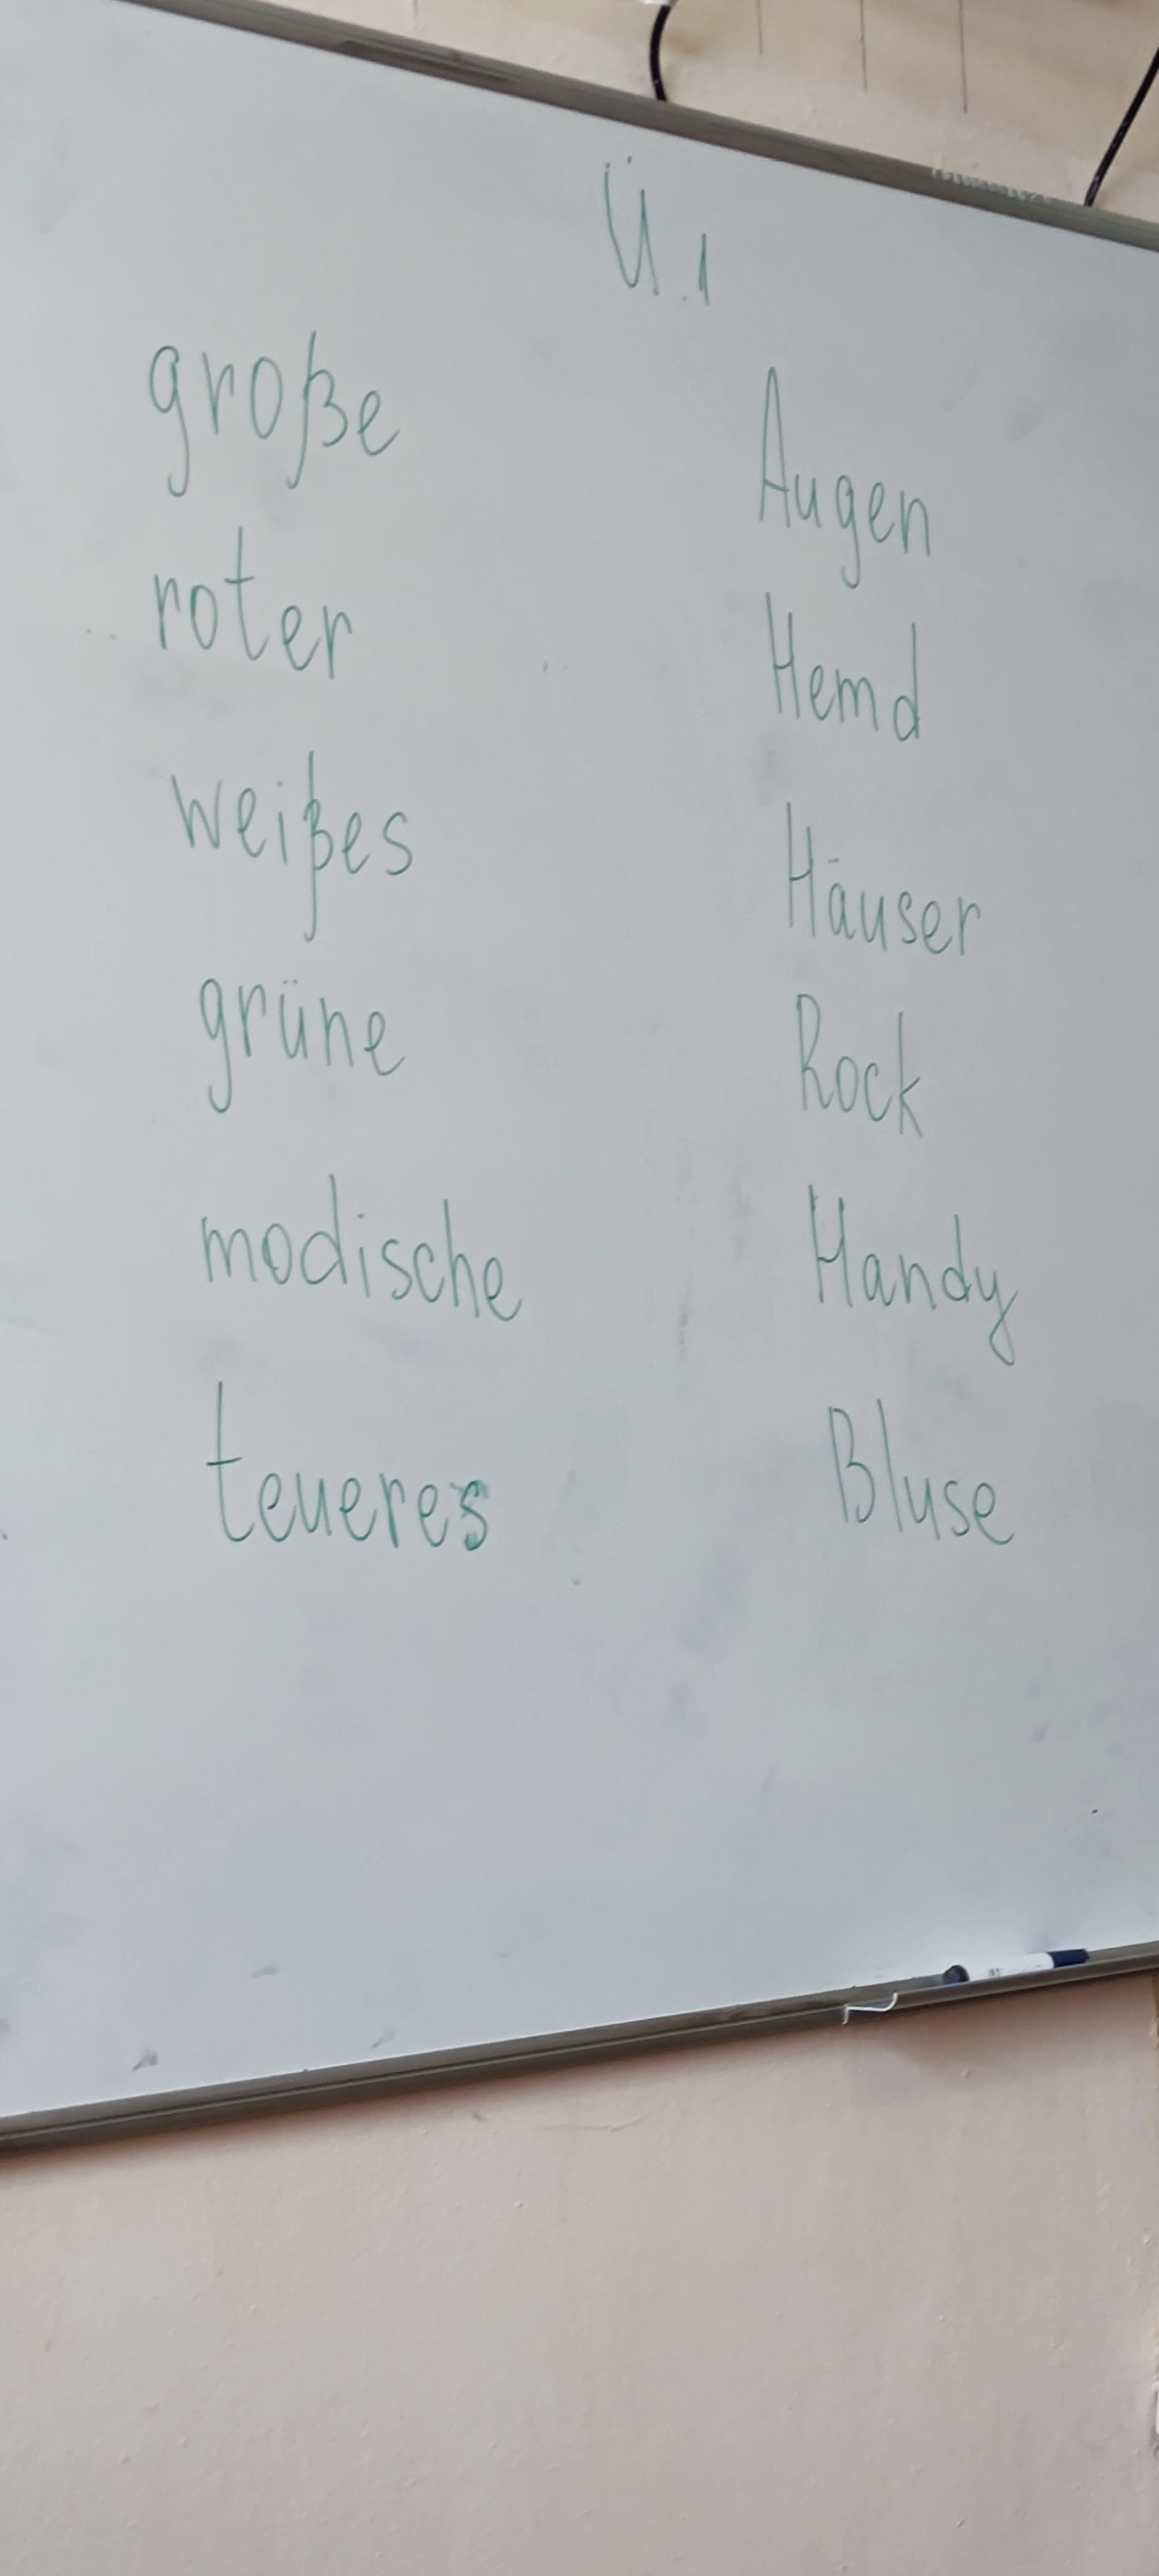 Ü.1
große
roter
weißes
grüne
modische
teueres
Augen
Hemd
Häuser
Rock
Handy
Bluse